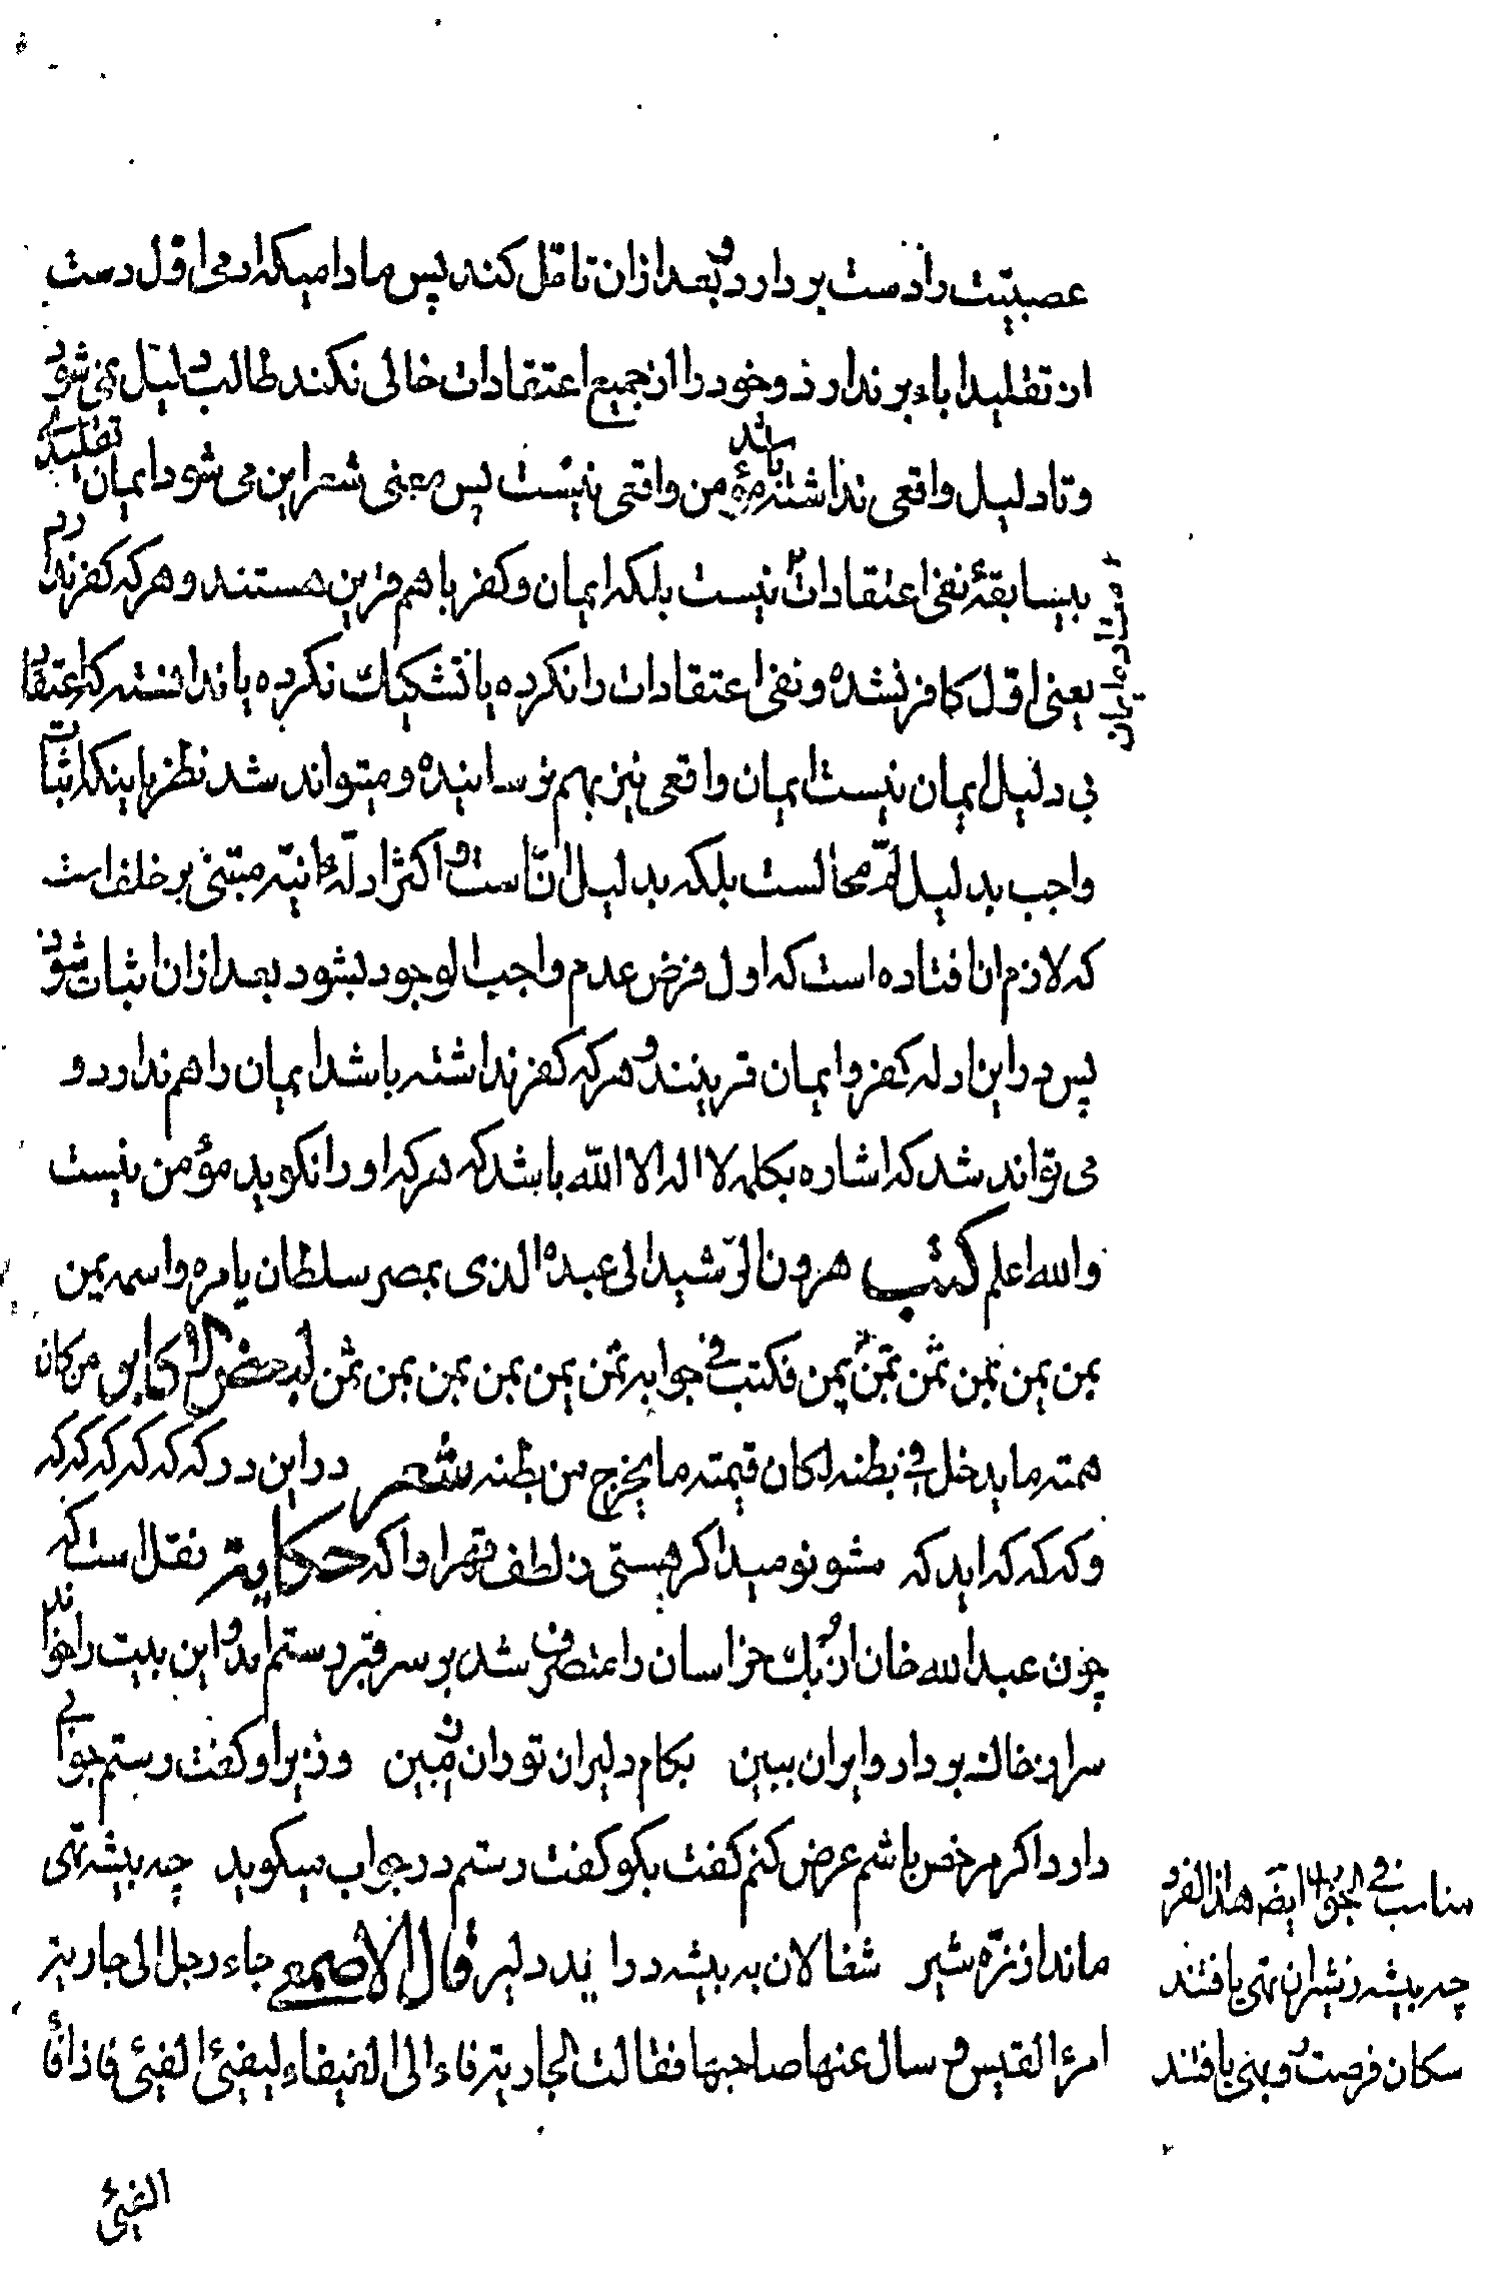 عصبیّت را دست بردارد و بعد از ان تامّل کند پس مادامیکه ادمی اوّل دست
از تقلید اباء برندارد و خود را از جمیع اعتقادات خالی نکند طالب دلیل نمی شود
و تا دلیل واقعی نداشته باشد مؤمن واقعی نیست پس معنی شعر این می شود ایمان تقلیدی
بیسابقهٔ نفی اعتقادات نیست بلکه ایمان و کفر با هم قرین هستند و هر که کفر ندارد
یعنی اوّل کافر نشده و نفی اعتقادات را نکرده یا تشکیک نکرده یا ندانسته که اعتقاد
بی دلیل ایمان نیست ایمان واقعی نیز بهم نرسانیده و میتواند شد نظر باینکه اثبات
واجب بدلیل لمّ محالست بلکه بدلیل انّ است و اکثر ادلّهٔ انیّه مبتنی بر خلف است
که لازم ان افتاده است که اول فرض عدم واجب الوجود بشود بعد از ان اثبات شود
پس در این ادله کفر و ایمان قرینند و هرکه کفر نداشته باشد ایمان را هم ندارد و
می تواند شد که اشاره بکلمه لا اله الا الله باشد که هرکه او را نکوید مؤمن نیست
والله اعلم کتب هرون الرّشید الی عبده الذی بمصر سلطان یامره واسمه یمن
یمن یمن یمن ثمن یمن فکتب فی جوابه ثمن یمن یمن یمن یمن ثمن لبعض الاکابر من کان
همته ما یدخل فی بطنه لکان قیمته ما یخرج من بطنه شعر در این در که که که که که که
و که که که اید که مشو نومید اکر هستی ز لطف قهر او اکه حکایة نقل است که
چون عبدالله خان ازبک خراسان را متصرف شد بر سر قبر رستم امد و این بیت را خواند
سر از خاک بردار و ایران ببین بکام دلیران توران زمین وزیر او کفت رستم جوابی
دارد اکر مرخص باشم عرض کنم کفت بکو کفت رستم در جواب میکوید چه بیشه تهی
ماند از نرّه شیر شغالان به بیشه درایند دلیر قال الاصمعی جاء رجل الی جاریة
امرئ القیس و سال عنها صاحبها فقالت الجاریة فاء الی الفیفاء لیفیئ الفیئ فاذا فا
الفیئ
مناسب فی الجواب ایضه هذا الفرد
چه بیشه ز شیران تهی یافتند
سکان فرصت و بهی یافتند